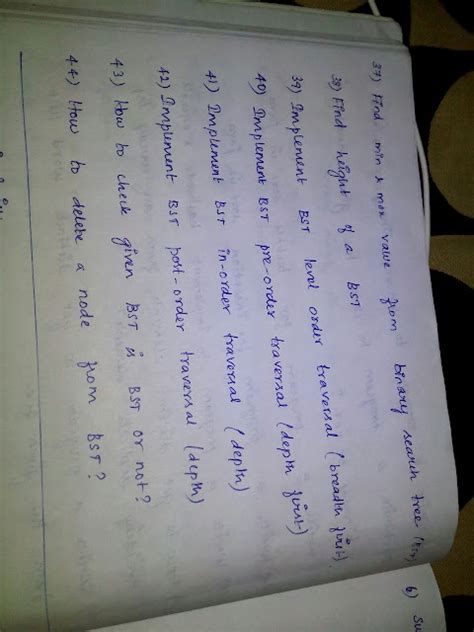 37) Find min & max value from binary search tree (itr)
39) Find height of a BST
39) Implement BST level order traversal (breadth first).
40) Implement BST pre-order traversal (depth first)
41) Implement BST in-order traversal (depth)
42) Implement BST post-order traversal (depth)
43) How to check given BST is BST or not?
44) How to delete a node from BST?
6)